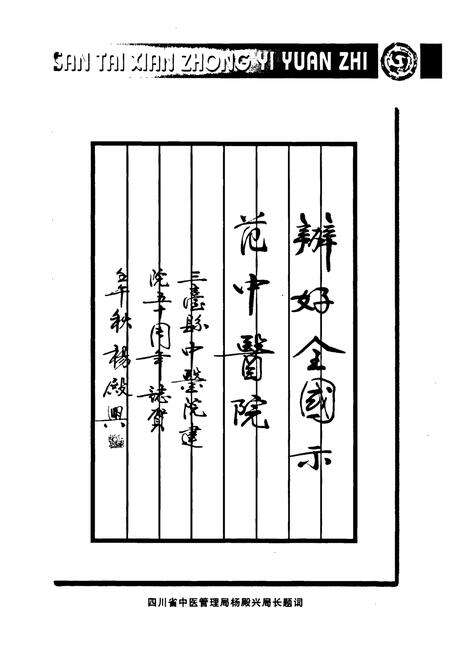 SAN TAI XIAN ZHONG YI YUAN ZHI
辦好全國示
范中醫院
三臺縣中醫院建
院五十周年誌賀
壬午秋楊殿興
四川省中医管理局杨殿兴局长题词